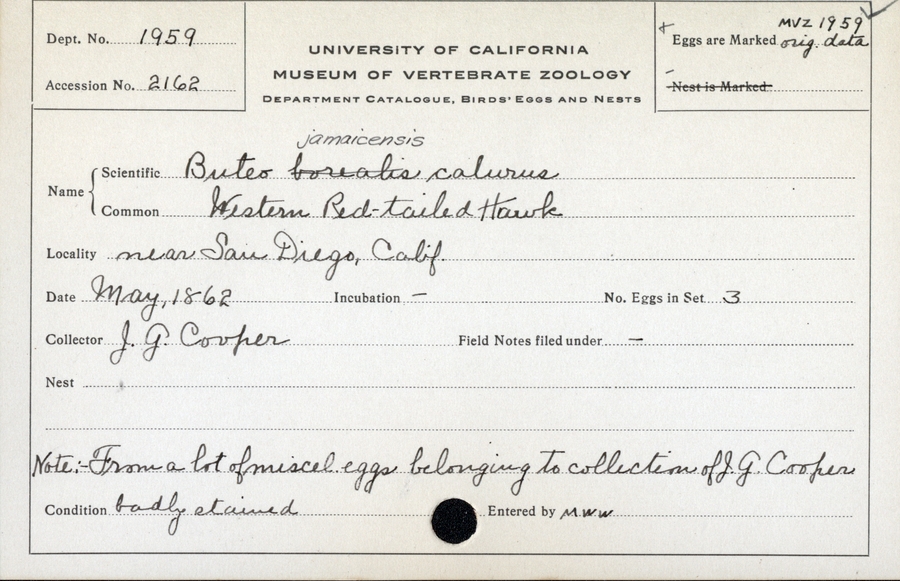 Dept. No. 1959
Accession No. 2162
UNIVERSITY OF CALIFORNIA
MUSEUM OF VERTEBRATE ZOOLOGY
DEPARTMENT CATALOGUE, BIRDS' EGGS AND NESTS
MVZ 1959
Eggs are Marked orig. data
Nest is Marked
jamaicensis
Name Scientific Buteo borealis calurus
Common Western Red-tailed Hawk
Locality near San Diego, Calif.
Date May, 1862 Incubation – No. Eggs in Set 3
Collector J. G. Cooper Field Notes filed under –
Nest
Note:- From a lot of miscel. eggs belonging to collection of J. G. Cooper
Condition badly stained Entered by MWW